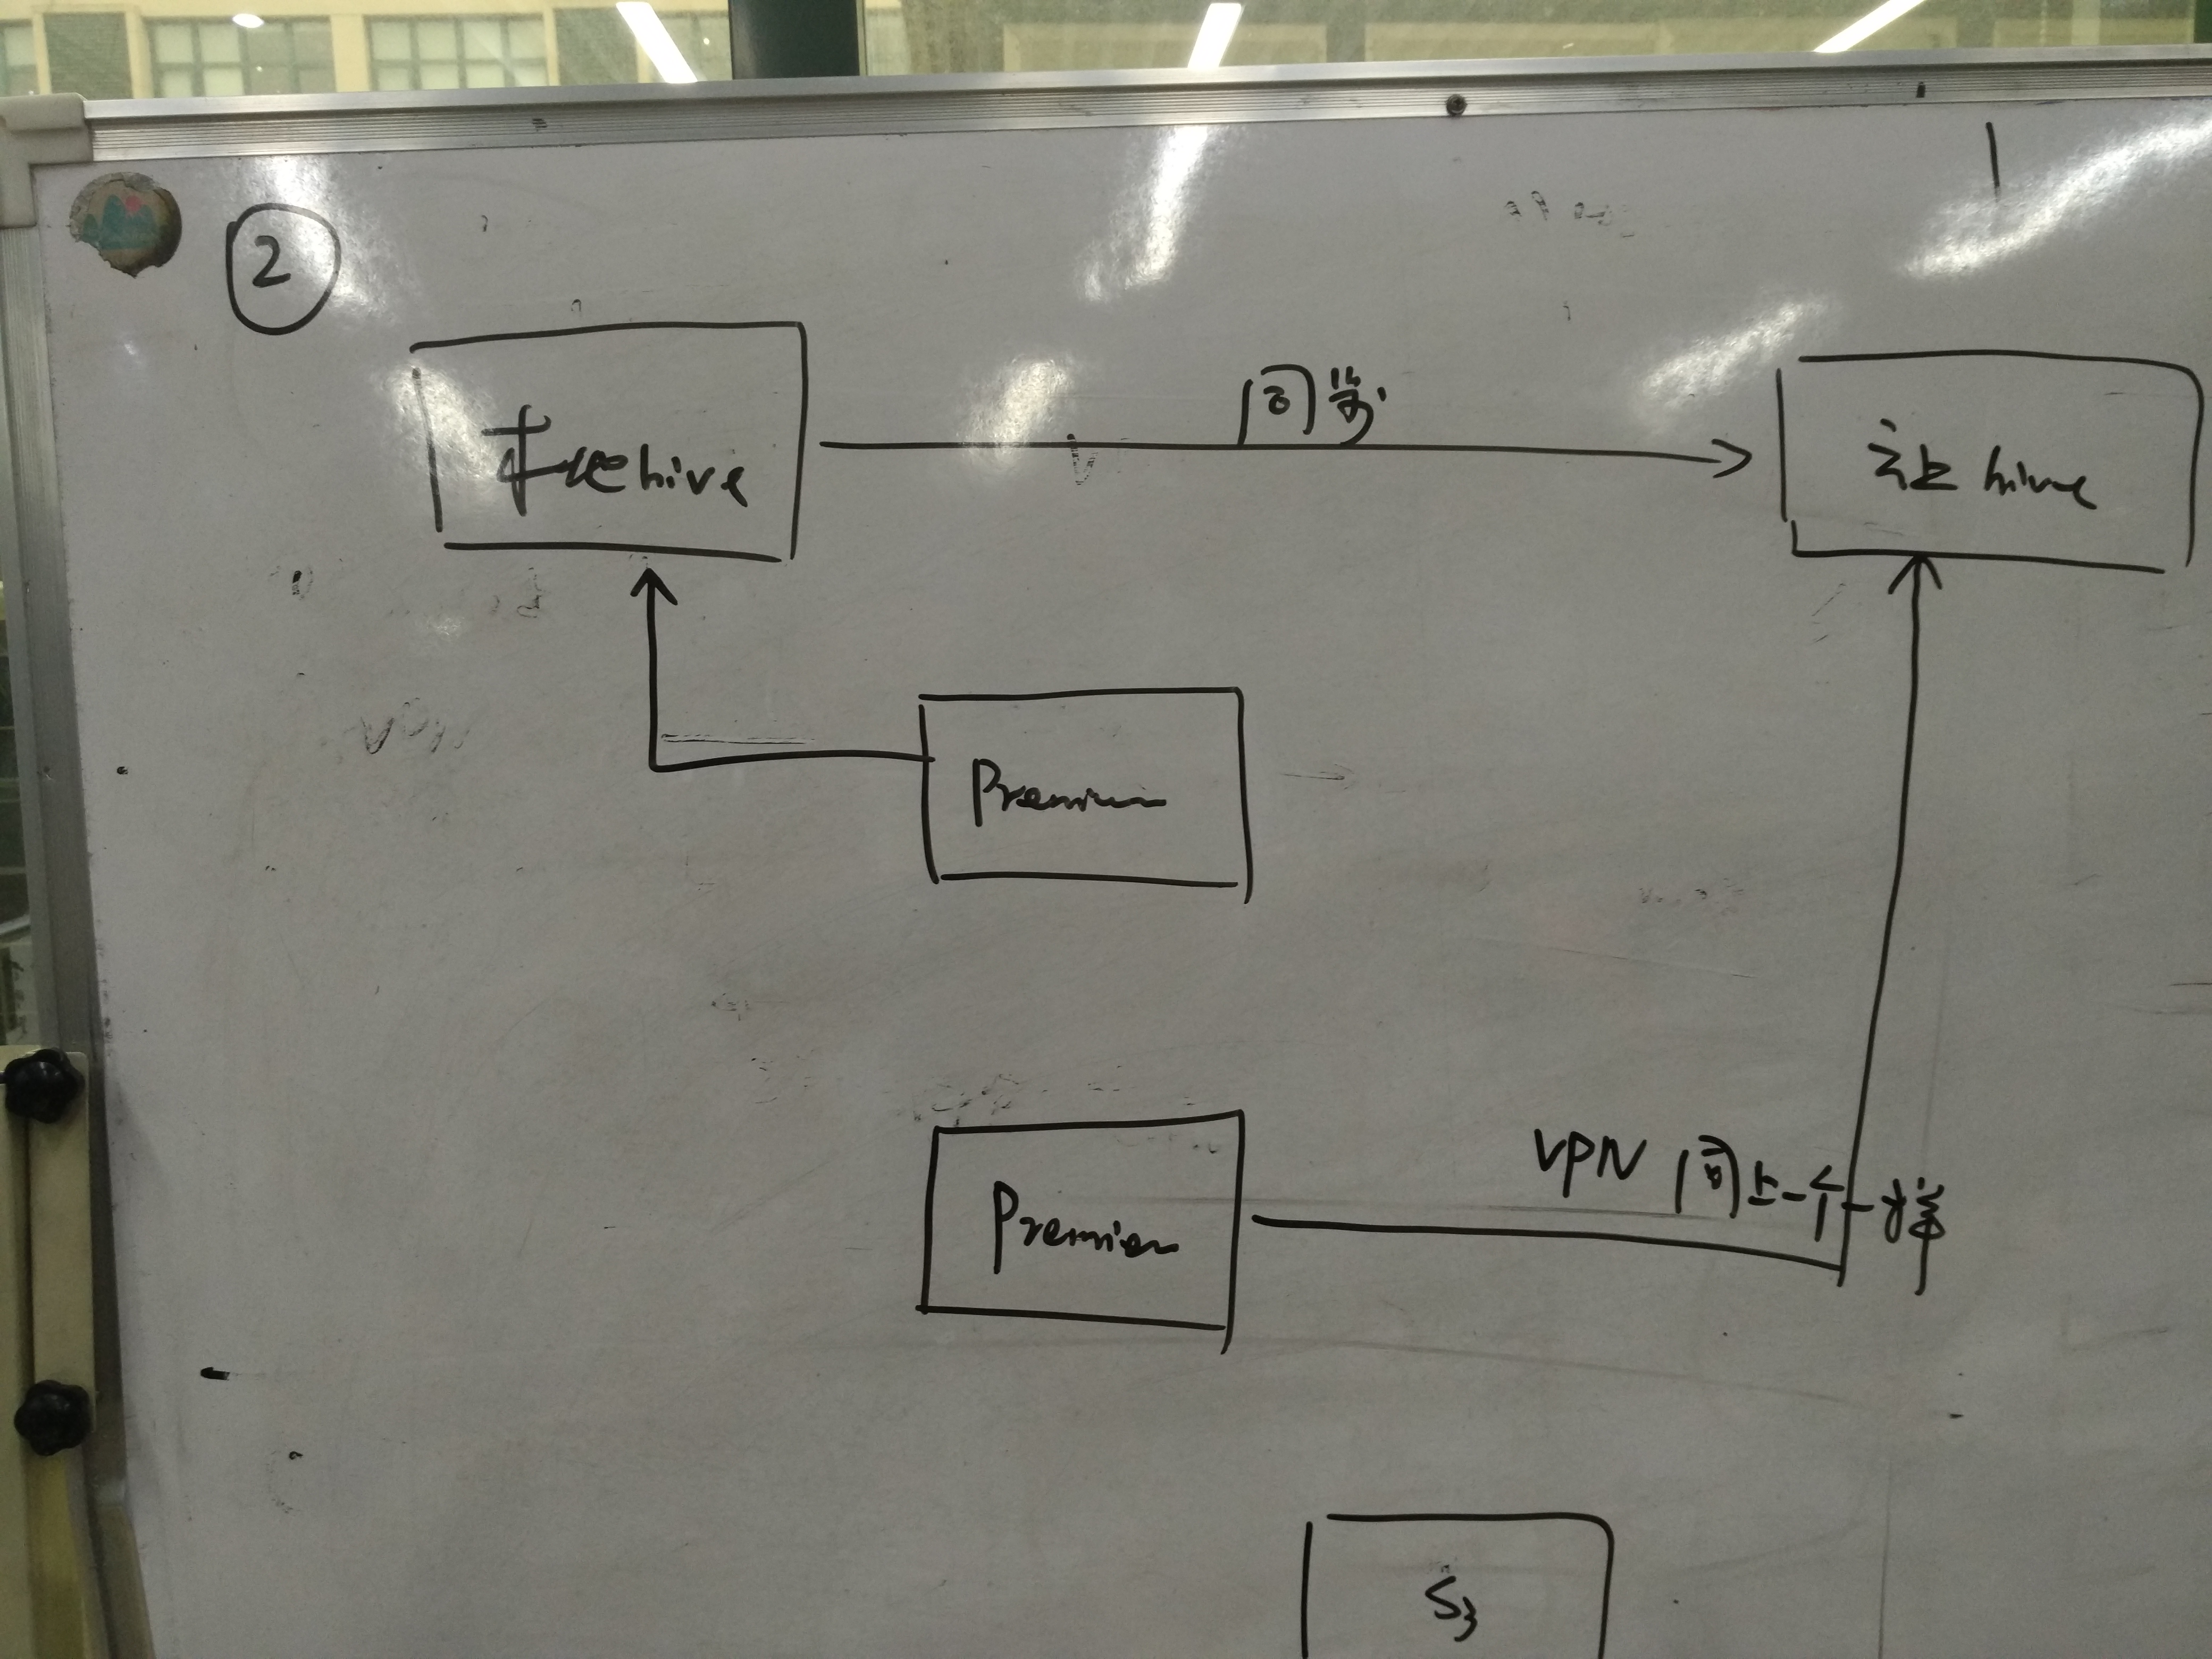 2
本地hive
同步
云上 hive
Premium
Premium
VPN 同上一个一样
S3